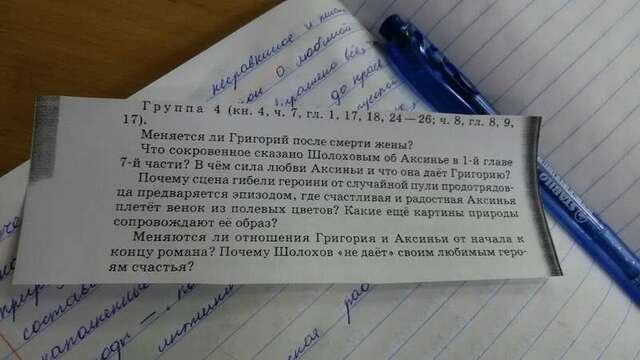 несравнимое и
он о любимой
выражено всё,
до крас
Группа 4 (кн. 4, ч. 7, гл. 1, 17, 18, 24—26; ч. 8, гл. 8, 9,
17).
Меняется ли Григорий после смерти жены?
Что сокровенное сказано Шолоховым об Аксинье в 1-й главе
7-й части? В чём сила любви Аксиньи и что она даёт Григорию?
Почему сцена гибели героини от случайной пули продотрядов-
ца предваряется эпизодом, где счастливая и радостная Аксинья
плетёт венок из полевых цветов? Какие ещё картины природы
сопровождают её образ?
Меняются ли отношения Григория и Аксиньи от начала к
концу романа? Почему Шолохов «не даёт» своим любимым геро-
ям счастья?
STABILO